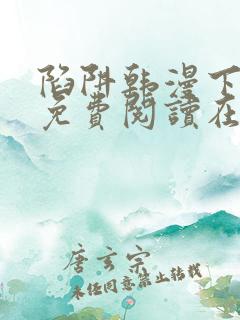 陷阱韩漫下
免費閱讀在
唐玄宗
未经同意禁止转载